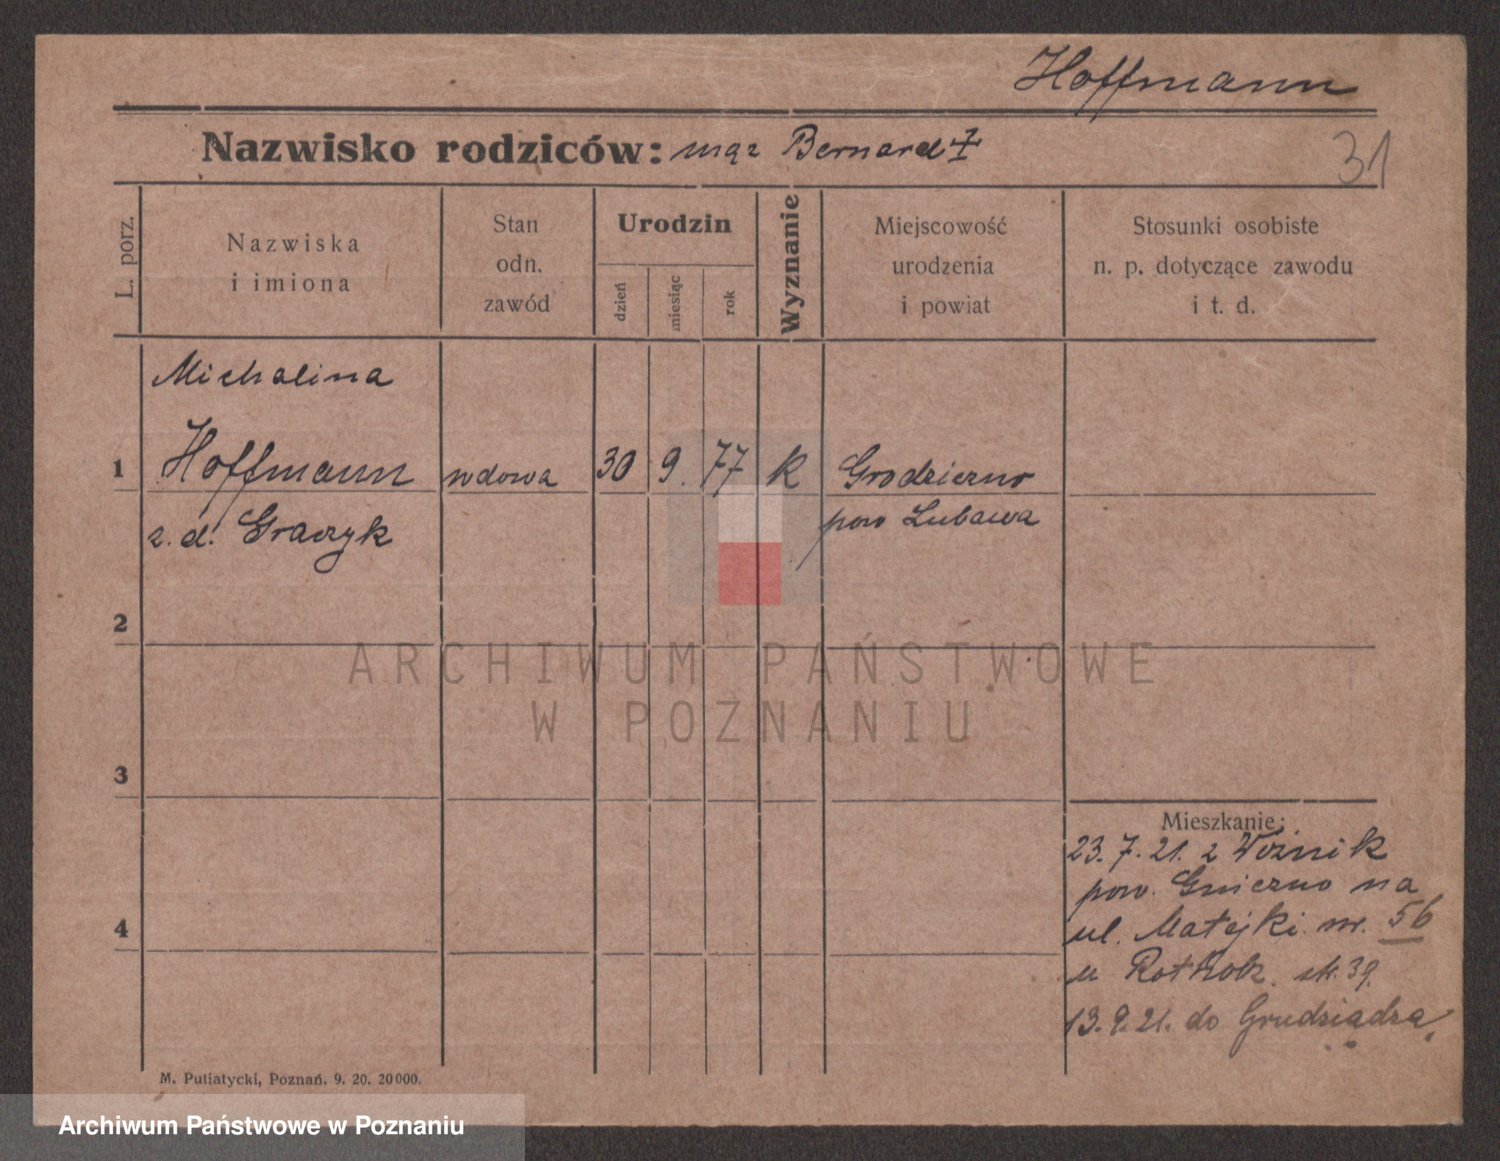 Hoffmann
Nazwisko rodziców: mąż Bernard ‡
31
L. porz.
Nazwiska
i imiona
Stan
odn.
zawód
Urodzin
dzień
miesiąc
rok
Wyznanie
Miejscowość
urodzenia
i powiat
Stosunki osobiste
n. p. dotyczące zawodu
i t. d.
Michalina
1 Hoffmann wdowa 30 9. 77 k Grodziczno
z. d. Graczyk pow Lubawa
2
ARCHIWUM PAŃSTWOWE
W POZNANIU
3
Mieszkanie:
23. 7. 21. z Woźnik
pow. Gniezno na
4
ul. Matejki nr. 56
u Rotholz. 39.
13. 9. 21. do Grudziądza.
M. Putiatycki, Poznań. 9. 20. 20000.
Archiwum Państwowe w Poznaniu